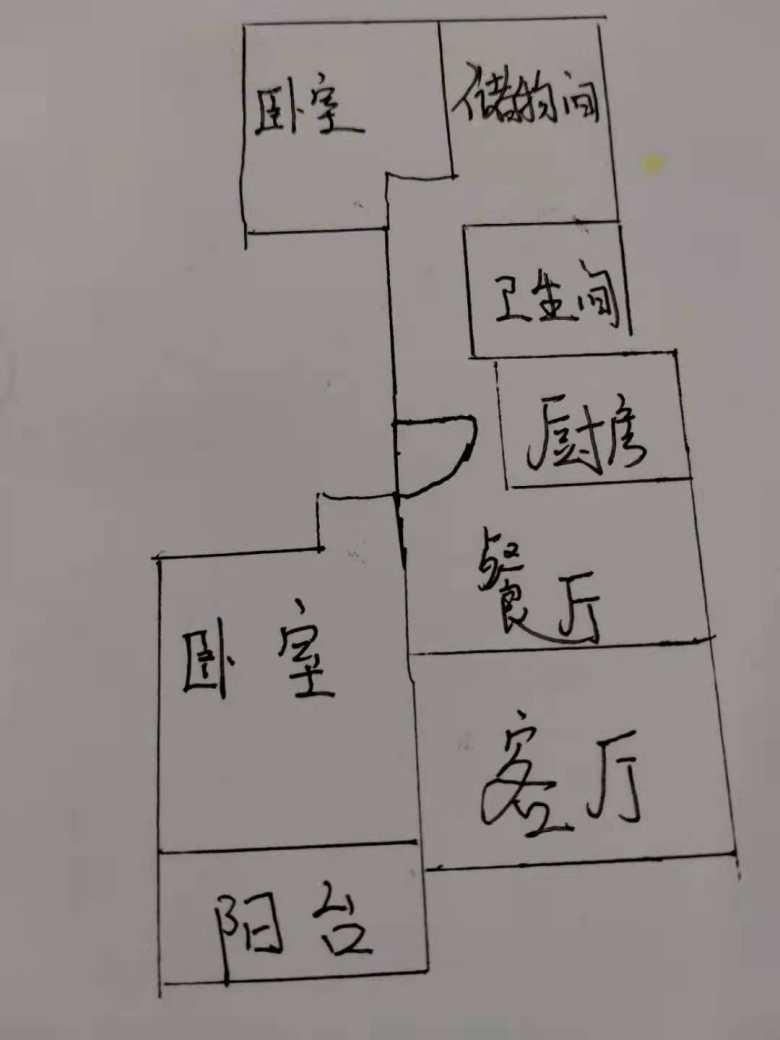 卧室
储物间
卫生间
厨房
餐厅
卧室
客厅
阳台